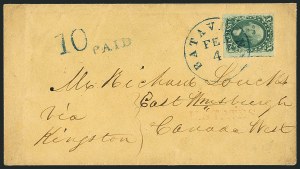 10 PAID
BATAVIA
FEB
4
Mr Richard Loucks
East Williamsburgh
via
Kingston
Canada West